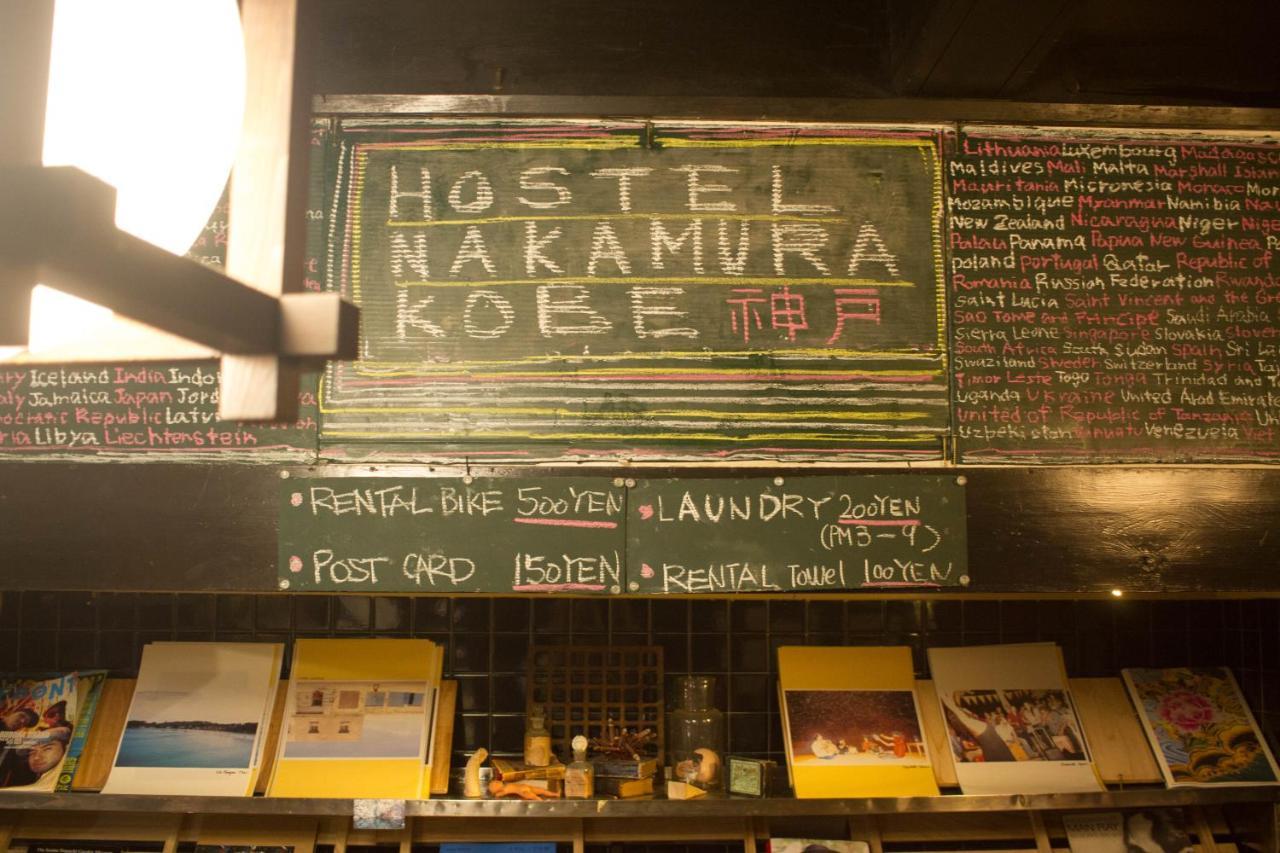 HOSTEL
NAKAMURA
KOBE 神戸
Iceland India
Jamaica Japan
Republic
Libya Liechtenstein
Lithuania Luxembourg
Maldives Mali Malta Marshall
Mauritania Micronesia Monaco
Mozambique Myanmar Namibia
New Zealand Nicaragua Niger
Palau Panama Papua New Guinea
Poland Portugal Qatar Republic of
Romania Russian Federation Rwanda
Saint Lucia Saint Vincent and the
Sao Tome and Principe Saudi Arabia
Sierra Leone Singapore Slovakia
South Africa South Sudan Spain Sri
Swaziland Sweden Switzerland Syria
Timor Leste Togo Tonga Trinidad and
Uganda Ukraine United Arab Emirate
United of Republic of Tanzania
Uzbekistan Vanuatu Venezuela Viet
RENTAL BIKE 500YEN
POST CARD 150YEN
LAUNDRY 200YEN
(PM3-9)
RENTAL Towel 100YEN
MAN RAY